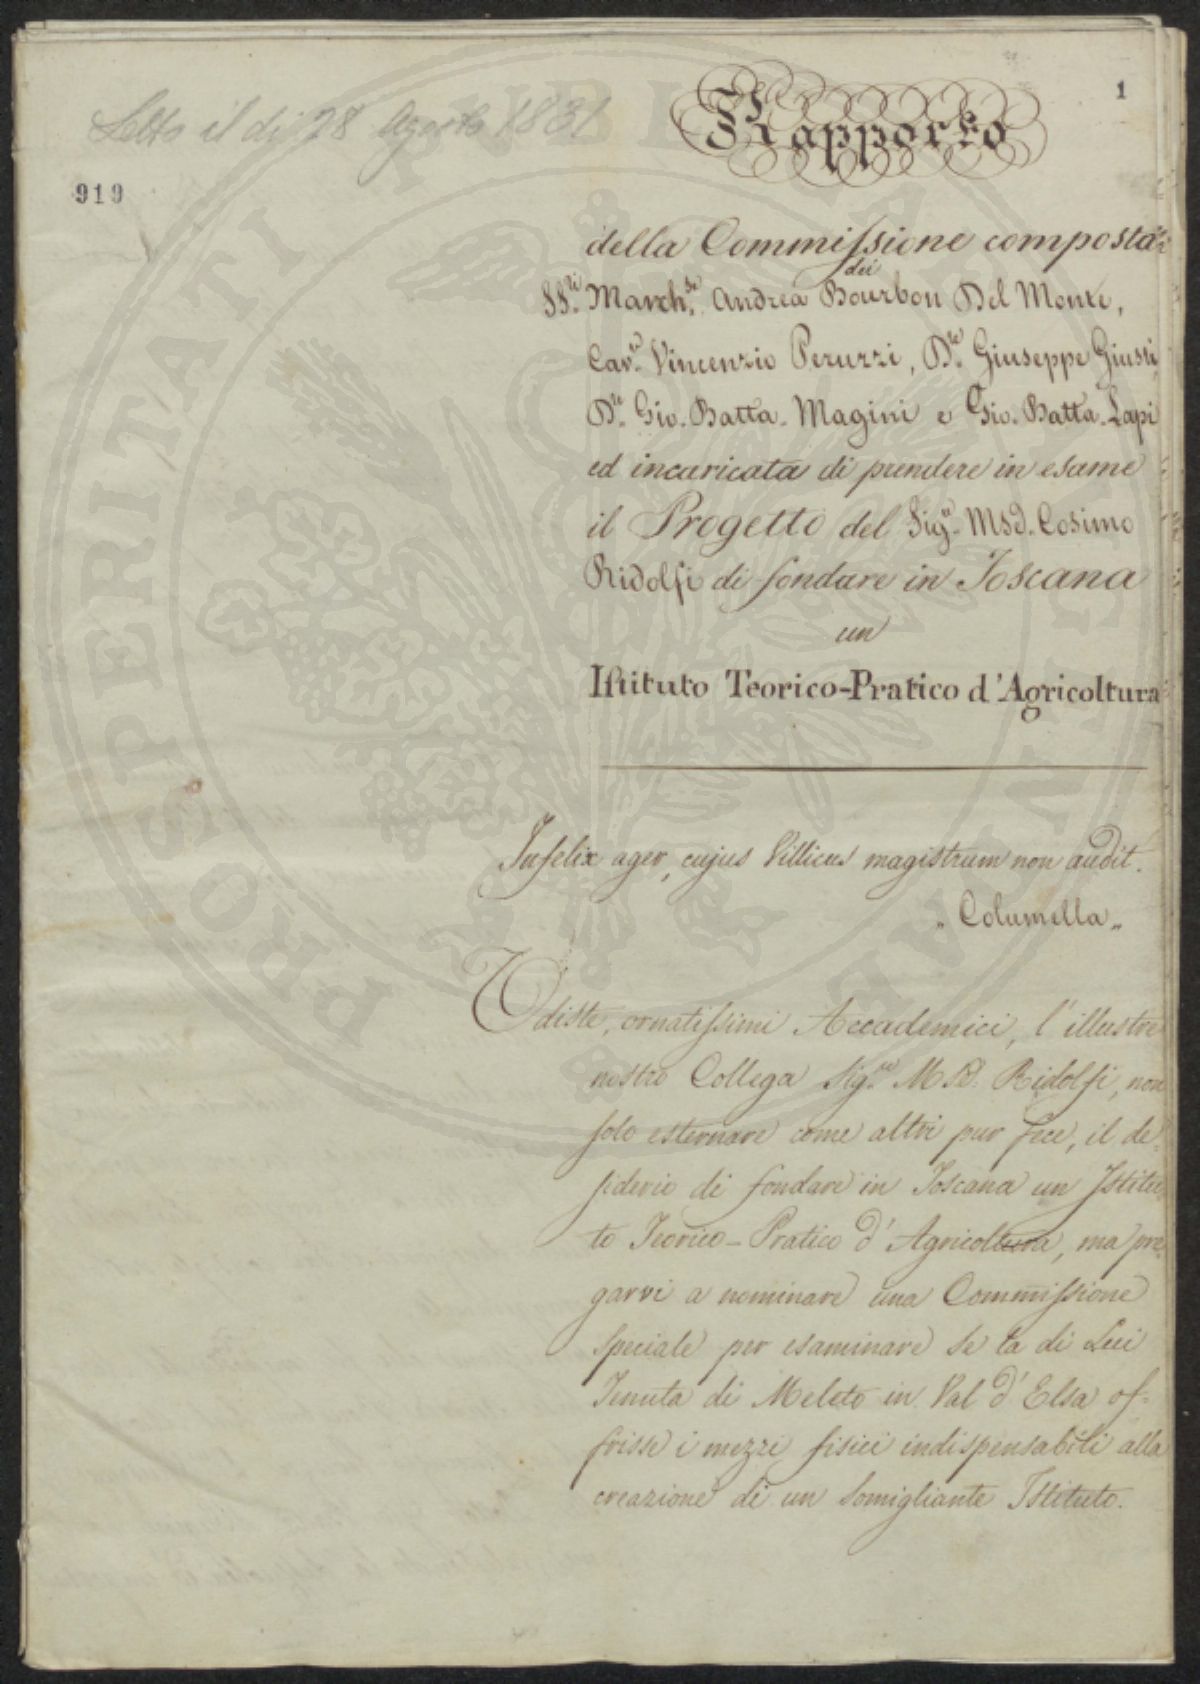 1
Letto il dì 28 Agosto 1831
Rapporto
919
della Commissione composta
dei
SS.ri March.se Andrea Bourbon Del Monte,
Cav.e Vincenzio Peruzzi, D.re Giuseppe Giusti,
D.re Gio. Batta. Magini e Gio. Batta. Lapi
ed incaricata di prendere in esame
il Progetto del Sig.r Msd. Cosimo
Ridolfi di fondare in Toscana
un
Istituto Teorico-Pratico d'Agricoltura
Infelix ager, cujus Villicus magistrum non audit.
„ Columella „
Udiste, ornatissimi Accademici, l'illustre
nostro Collega Sig.re Ridolfi, non
solo esternare come altri pur fece, il de-
siderio di fondare in Toscana un Istitu-
to Teorico-Pratico d'Agricoltura, ma pre-
garvi a nominare una Commissione
speciale per esaminare se la di Lui
Tenuta di Meleto in Val d'Elsa of-
frisse i mezzi fisici indispensabili alla
creazione di un somigliante Istituto.
PROSPERITATI PUBLICAE AUGENDAE